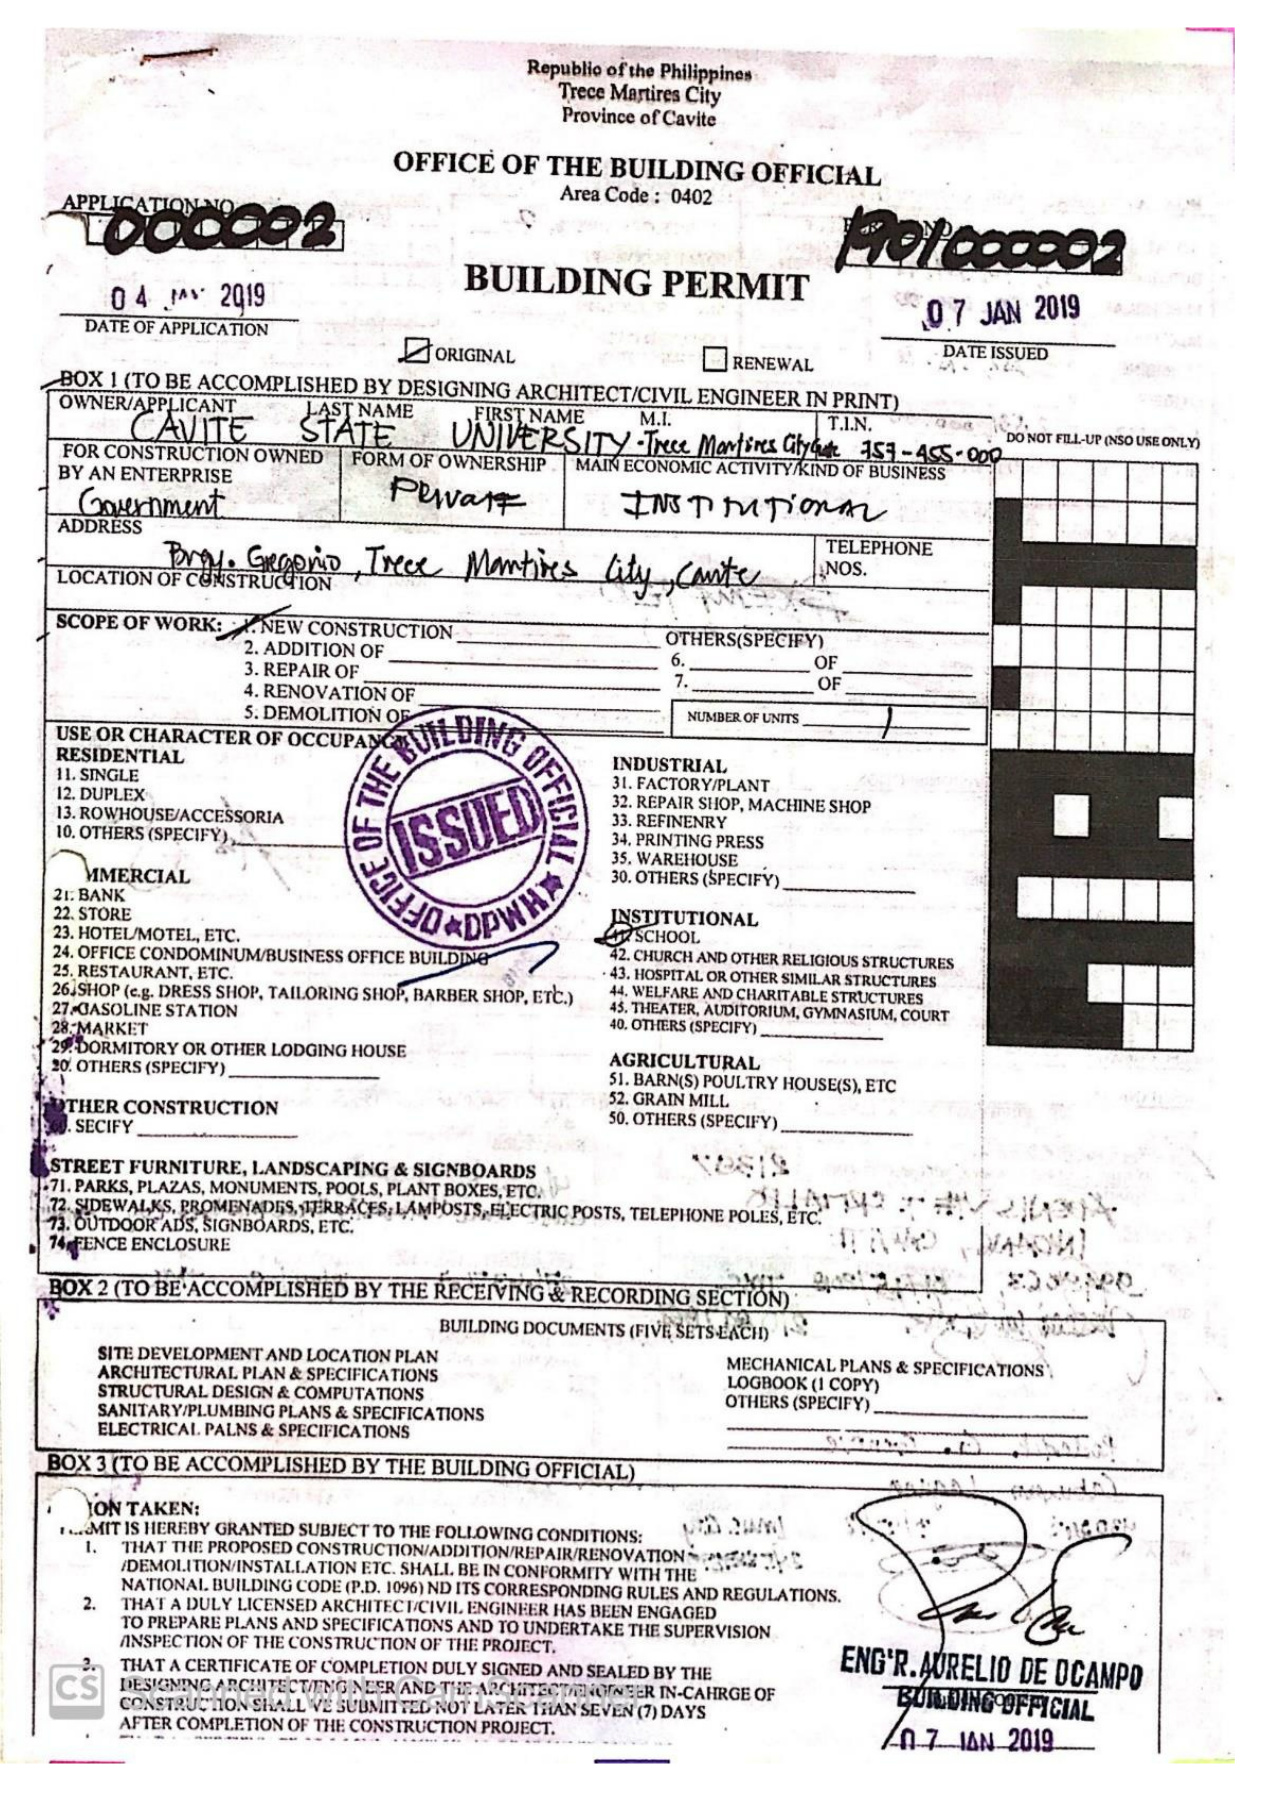 Republic of the Philippines
Trece Martires City
Province of Cavite
OFFICE OF THE BUILDING OFFICIAL
Area Code : 0402
APPLICATION NO.
000002
1901000002
BUILDING PERMIT
04 2019
07 JAN 2019
DATE OF APPLICATION
DATE ISSUED
ORIGINAL
RENEWAL
BOX 1 (TO BE ACCOMPLISHED BY DESIGNING ARCHITECT/CIVIL ENGINEER IN PRINT)
OWNER/APPLICANT LAST NAME FIRST NAME M.I. T.I.N.
CAVITE STATE UNIVERSITY - Trece Martires City 757-455-000
DO NOT FILL-UP (NSO USE ONLY)
FOR CONSTRUCTION OWNED BY AN ENTERPRISE
Government
FORM OF OWNERSHIP
Private
MAIN ECONOMIC ACTIVITY/KIND OF BUSINESS
INSTITUTIONAL
ADDRESS
Brgy. Gregorio, Trece Martires City, Cavite
TELEPHONE NOS.
LOCATION OF CONSTRUCTION
SCOPE OF WORK: 1. NEW CONSTRUCTION
2. ADDITION OF
3. REPAIR OF
4. RENOVATION OF
5. DEMOLITION OF
OTHERS(SPECIFY)
6. OF
7. OF
NUMBER OF UNITS 1
USE OR CHARACTER OF OCCUPANCY
RESIDENTIAL
11. SINGLE
12. DUPLEX
13. ROWHOUSE/ACCESSORIA
10. OTHERS (SPECIFY)
OFFICE OF THE BUILDING OFFICIAL
ISSUED
DPWH
MMERCIAL
21. BANK
22. STORE
23. HOTEL/MOTEL, ETC.
24. OFFICE CONDOMINUM/BUSINESS OFFICE BUILDING
25. RESTAURANT, ETC.
26. SHOP (e.g. DRESS SHOP, TAILORING SHOP, BARBER SHOP, ETC.)
27. GASOLINE STATION
28. MARKET
29. DORMITORY OR OTHER LODGING HOUSE
20. OTHERS (SPECIFY)
OTHER CONSTRUCTION
60. SECIFY
INDUSTRIAL
31. FACTORY/PLANT
32. REPAIR SHOP, MACHINE SHOP
33. REFINENRY
34. PRINTING PRESS
35. WAREHOUSE
30. OTHERS (SPECIFY)
INSTITUTIONAL
41. SCHOOL
42. CHURCH AND OTHER RELIGIOUS STRUCTURES
43. HOSPITAL OR OTHER SIMILAR STRUCTURES
44. WELFARE AND CHARITABLE STRUCTURES
45. THEATER, AUDITORIUM, GYMNASIUM, COURT
40. OTHERS (SPECIFY)
AGRICULTURAL
51. BARN(S) POULTRY HOUSE(S), ETC
52. GRAIN MILL
50. OTHERS (SPECIFY)
STREET FURNITURE, LANDSCAPING & SIGNBOARDS
71. PARKS, PLAZAS, MONUMENTS, POOLS, PLANT BOXES, ETC.
72. SIDEWALKS, PROMENADES, TERRACES, LAMPOSTS, ELECTRIC POSTS, TELEPHONE POLES, ETC.
73. OUTDOOR ADS, SIGNBOARDS, ETC.
74. FENCE ENCLOSURE
BOX 2 (TO BE ACCOMPLISHED BY THE RECEIVING & RECORDING SECTION)
BUILDING DOCUMENTS (FIVE SETS EACH)
SITE DEVELOPMENT AND LOCATION PLAN
ARCHITECTURAL PLAN & SPECIFICATIONS
STRUCTURAL DESIGN & COMPUTATIONS
SANITARY/PLUMBING PLANS & SPECIFICATIONS
ELECTRICAL PALNS & SPECIFICATIONS
MECHANICAL PLANS & SPECIFICATIONS
LOGBOOK (1 COPY)
OTHERS (SPECIFY)
BOX 3 (TO BE ACCOMPLISHED BY THE BUILDING OFFICIAL)
ION TAKEN:
MIT IS HEREBY GRANTED SUBJECT TO THE FOLLOWING CONDITIONS:
1. THAT THE PROPOSED CONSTRUCTION/ADDITION/REPAIR/RENOVATION
/DEMOLITION/INSTALLATION ETC. SHALL BE IN CONFORMITY WITH THE
NATIONAL BUILDING CODE (P.D. 1096) ND ITS CORRESPONDING RULES AND REGULATIONS.
2. THAT A DULY LICENSED ARCHITECT/CIVIL ENGINEER HAS BEEN ENGAGED
TO PREPARE PLANS AND SPECIFICATIONS AND TO UNDERTAKE THE SUPERVISION
/INSPECTION OF THE CONSTRUCTION OF THE PROJECT.
3. THAT A CERTIFICATE OF COMPLETION DULY SIGNED AND SEALED BY THE
DESIGNING ARCHITECT/ENGINEER AND THE ARCHITECT/ENGINEER IN-CAHRGE OF
CONSTRUCTION SHALL VE SUBMITTED NOT LATER THAN SEVEN (7) DAYS
AFTER COMPLETION OF THE CONSTRUCTION PROJECT.
ENG'R. AURELIO DE OCAMPO
BUILDING OFFICIAL
07 JAN 2019
CS Scanned with CamScanner